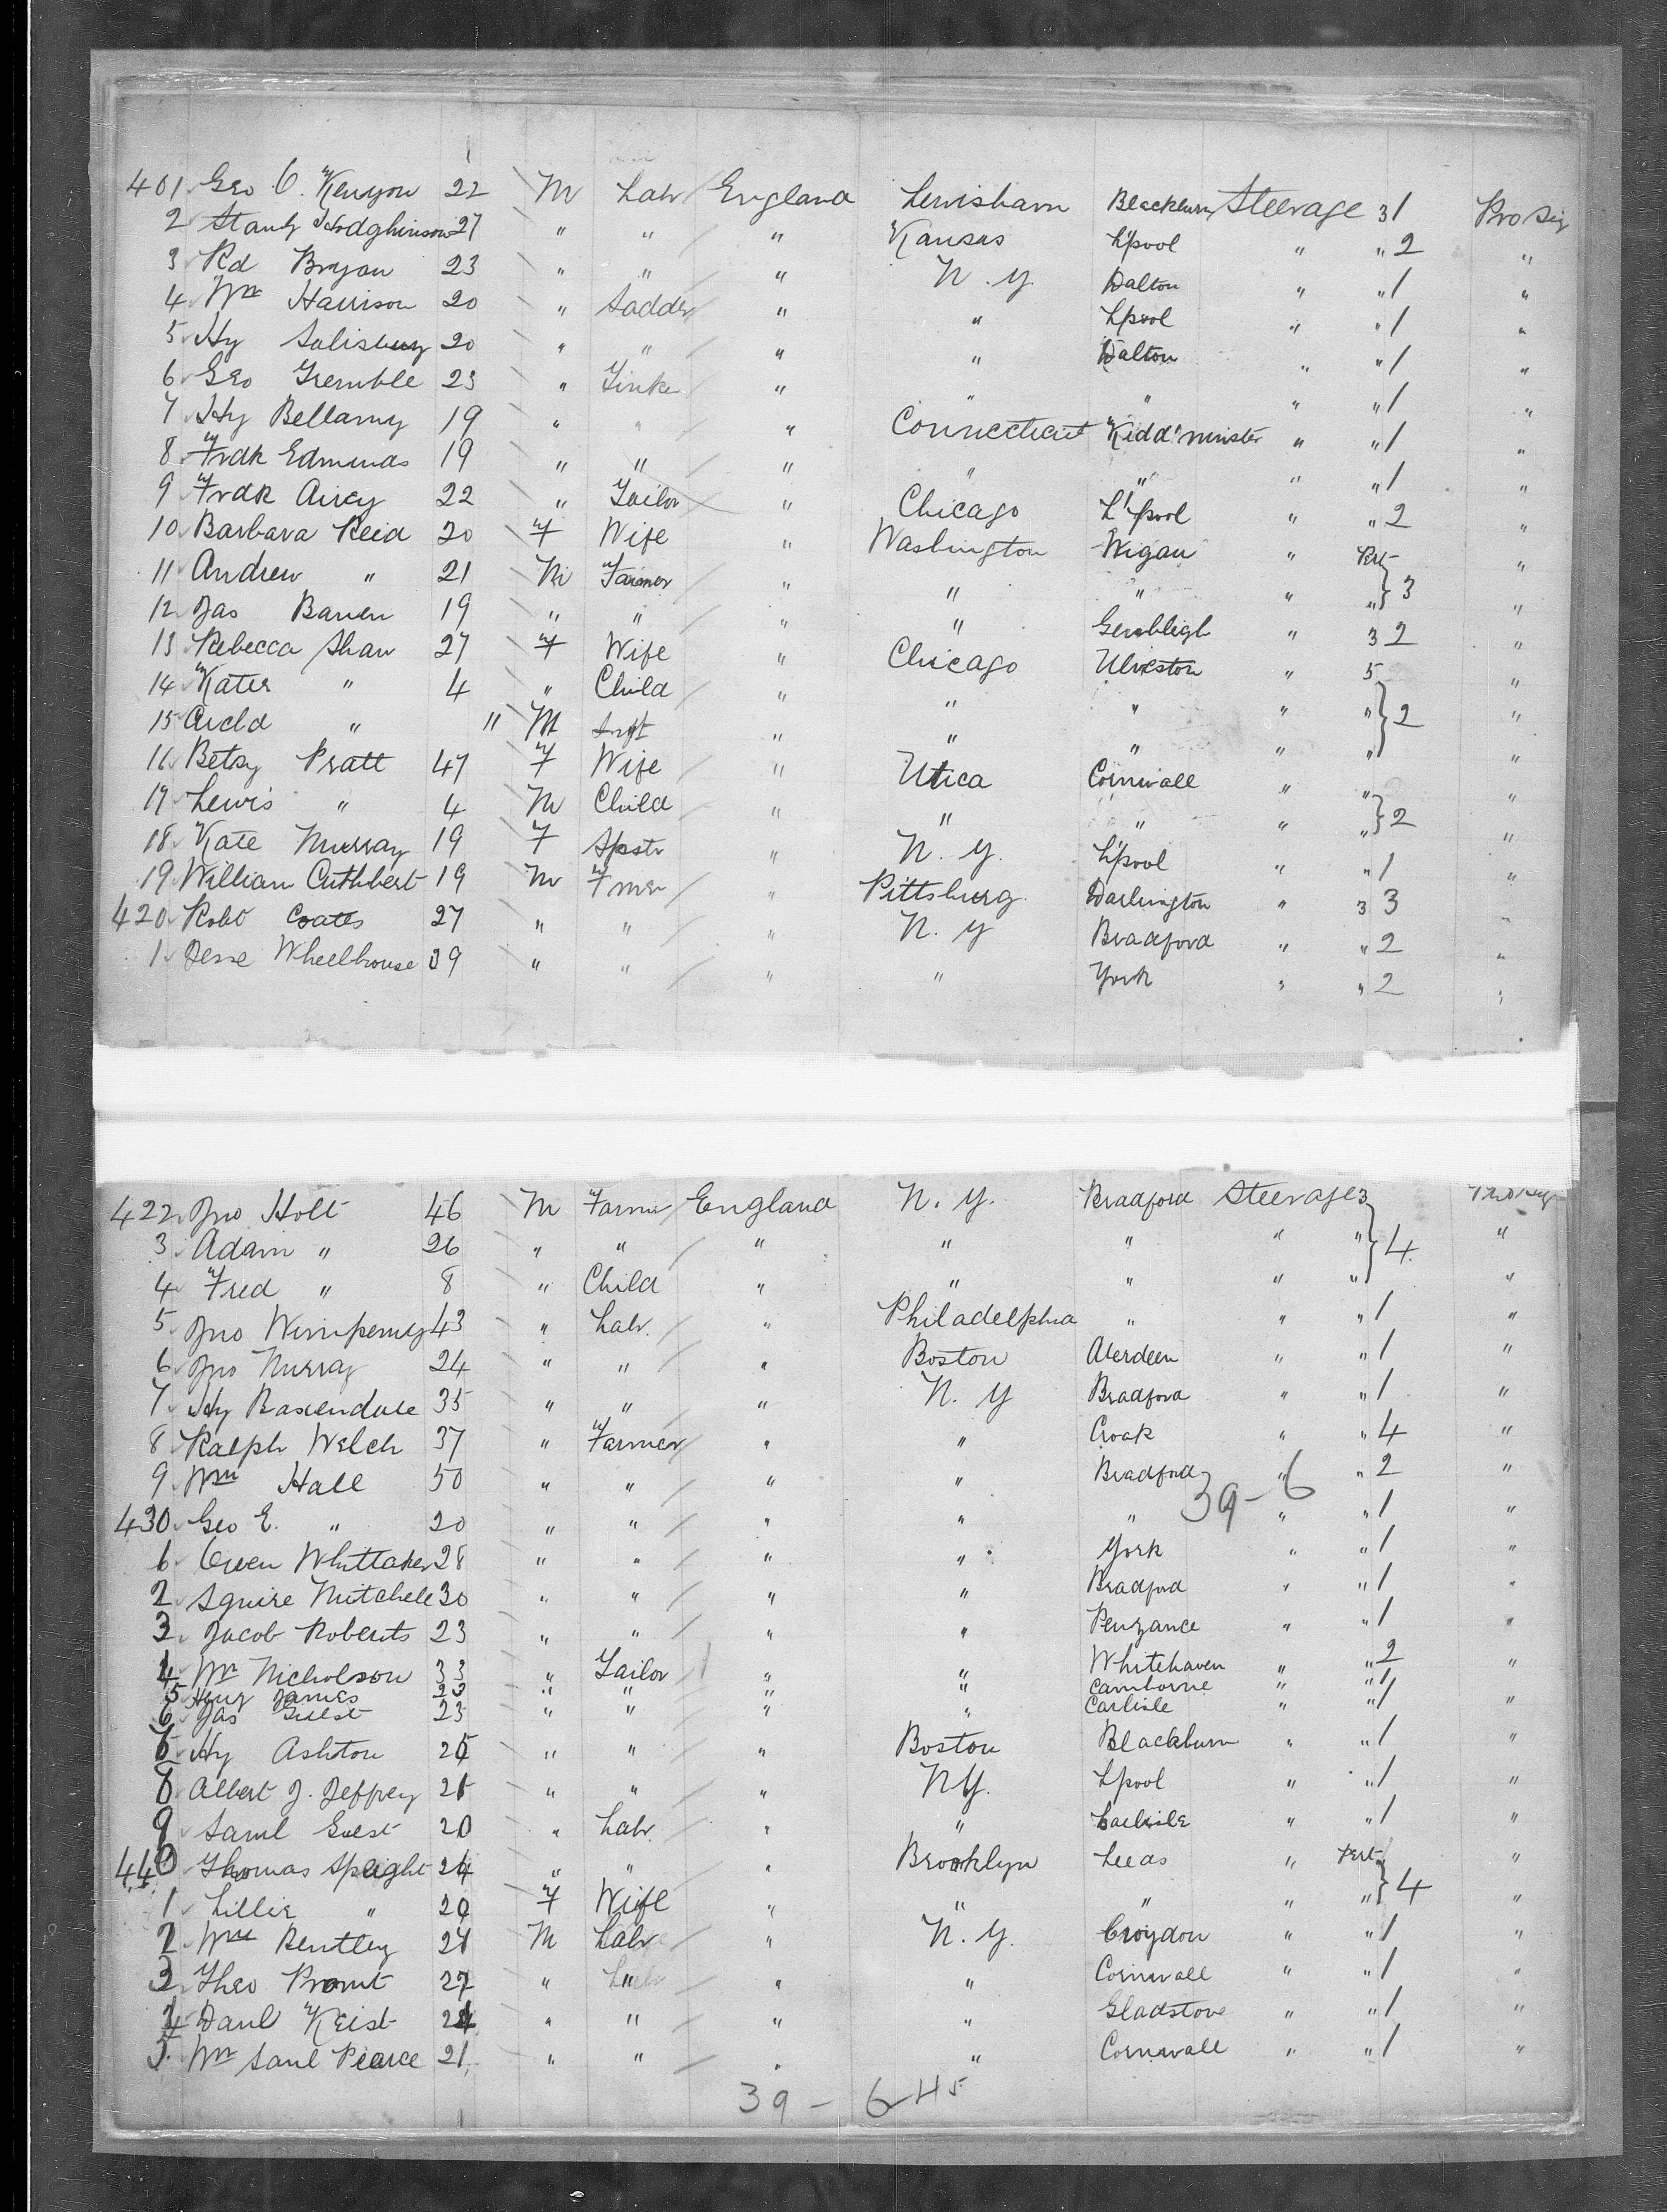 401 Geo C. Kenyon 22 M Labr England Lewisham Blackburn Steerage 3 1 Pro Sig
2 Stanly Hodghinson 27 " " " Kansas L'pool " " 2 "
3 Rd Bryan 23 " " " N.Y. Dalton " " 1 "
4 Wm Harrison 20 " Sadder " " Lpool " " 1 "
5 Hy Salisbury 20 " " " " Dalton " " 1 "
6 Geo Tremble 23 " " " " " " 1 "
7 Hy Bellamy 19 " " " Connecticut Kidd'minster " " 1 "
8 Fredk Edmunds 19 " " " " " " " 1 "
9 Fredk Airey 22 " Tailor " Chicago L'pool " " 2 "
10 Barbara Reid 20 F Wife " Washington Wigan " "
11 Andrew " 21 M Farmer " " " " " 3 "
12 Jas 19 " " " " " 3 2 "
13 Rebecca Shaw 27 F Wife " Chicago Ulveston " 5 "
14 Kater " 4 " Child " " " " " 2 "
15 Archd " " M Inft " " " " " "
16 Betsy Pratt 47 F Wife " Utica Cornwall " " "
17 Lewis " 4 M Child " " " " " 2 "
18 Kate Murray 19 F Spstr " N.Y. L'pool " " 1 "
19 William Cuthbert 19 M Fmer " Pittsburg Darlington " 3 3 "
420 Robt Coates 27 " " " N.Y Bradford " " 2 "
1 Jesse Wheelhouse 39 " " " " York " " 2 "
422 Jno Holt 46 M Farmer England N.Y. Bradford Steerage 3
3 Adam " 26 " " " " " " " 4 "
4 Fred " 8 " Child " " " " " "
5 Jno Wimpenny 43 " Labr. " Philadelphia " " " 1 "
6 Jno Murray 24 " " " Boston Aberdeen " " 1 "
7 Hy Baxendale 35 " " " N.Y Bradford " " 1 "
8 Ralph Welch 37 " Farmer " " Croak " " 4 "
9 Wm Hall 50 " " " " Bradford " " 2 "
39-6
430 Geo E. " 20 " " " " " " " 1 "
6 Owen Whittaker 28 " " " " York " " 1 "
2 Squire Mitchell 30 " " " " Bradford " " 1 "
3 Jacob Roberts 23 " " " " Penzance " " 1 "
4 Wm Nicholson 33 " Tailor " " Whitehaven " " 2 "
5 Henry James " " " " Camborne " " 1
6 Jas Guest 23 " " " " Carlisle " " 1 "
Hy Ashton " " " Boston Blackburn " " 1 "
8 Albert J. Jeffrey 21 " " " N.Y. Lpool " " 1 "
9 Saml Guest 20 " Labr " " Carlisle " " 1 "
440 Thomas Speight " " " Brooklyn Leeds " "
1 Lillie " F Wife " " " " " 4 "
2 Wm Bentley M Labr " N.Y. Croydon " " 1 "
3 Theo 27 " " " " Cornwall " " 1 "
4 Danl Keist " " " " Gladstone " " 1 "
5 Wm Saml Pearce 21 " " " " Cornwall " " 1 "
39 - 6 45